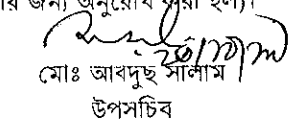 জন্য অনুরোধ করা হল।
মোঃ আবদুছ সালাম
উপসচিব